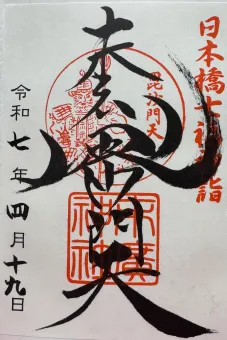 日本橋七福神詣
毘沙門天
門天
末廣
神社
令和七年四月十九日